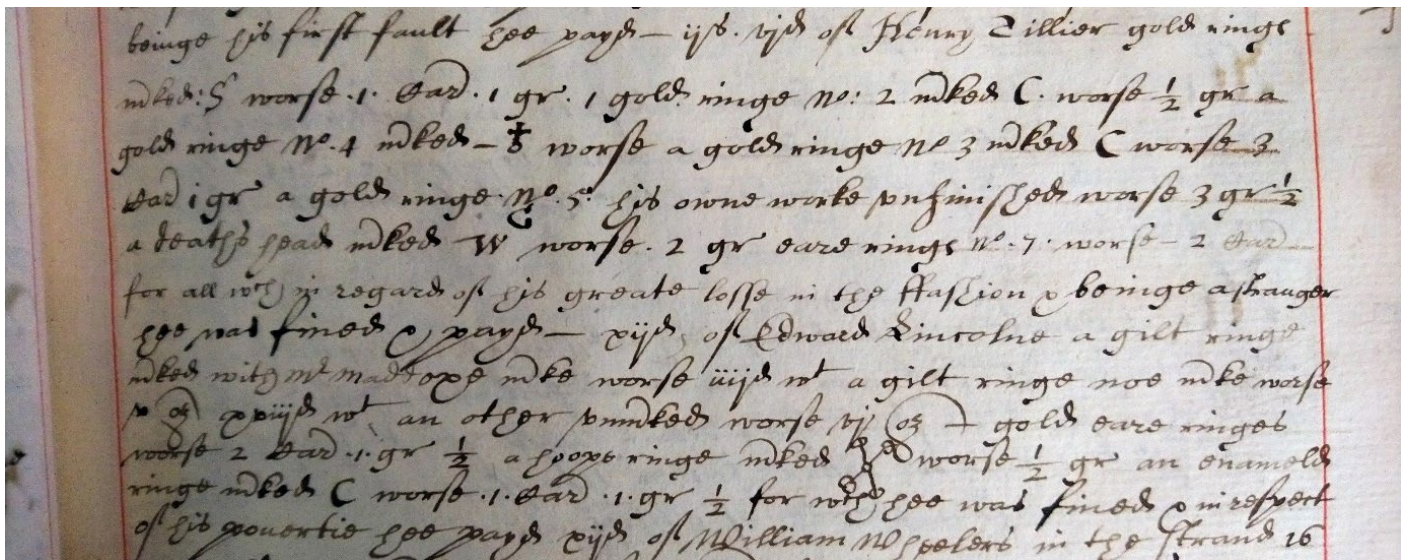 beinge his first fault hee payd – ijs. vjd of Henry Tillier gold rings
mked: S worse .1. Card. 1 gr. 1 gold ringe No: 2 mked C. worse ½ gr a
gold ringe No. 4 mked – worse a gold ringe No 3 mked C worse 3
Card 1 gr a gold ringe No. 5. his owne worke vnfinished worse 3 gr ½
a deaths head mked W worse . 2 gr eare rings No. 7. worse – 2 Card
for all wch in regard of his greate losse in the ffashion & beinge a stranger
hee was fined & payd – xijd of Edward Lincolne a gilt ringe
mked with Mr mke worse iiijd wt a gilt ringe noe mke worse
v oz xviijd wt an other vnmked worse vj oz – gold eare ringes
worse 2 Card .1. gr ½ a hoope ringe mked worse ½ gr an enameld
ringe mked C worse .1. Card .1. gr ½ for wch hee was fined & in respect
of his pouertie hee payd xijd of William Wheelers in the Strand 16